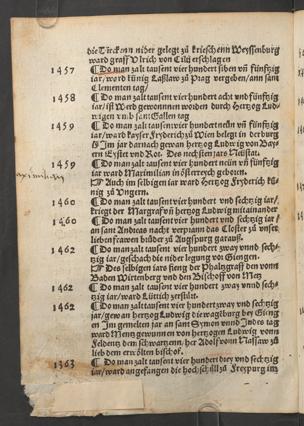 die Türcken nider gelegt zů kriechenn Weyssenburg
ward graff Vlrich von Cili erschlagen
1457 ¶ Do man zalt tausent vier hundert siben vñ fünftzig
iar/ ward künig Laßlaw zů Prag vergeben/ ann sant
Clementen tag/
1458 ¶ Do man zalt tausent vier hundert acht vnd fünftzig
iar/ ist Werd gewonnnen worden durch Hertzog Lud
wigen vnb sant Gallen tag
1459 ¶ Do man zalt tausent vier hundert neün vñ fünftzig
iar/ ward kayser Fryderich zů Wien belegt in der burg
¶ Im jar darnach gewan hertzog Ludwig von Bay
ern Eystet vnd Rot.
1459 ¶ Do man zalt tausent vier hundert neün vñ fünftzig
iar ward Maximilian in österreych geboren.
Auch im selbigen iar ward Hertzog Fryderich kü-
nig zů Vngern.
1460 ¶ Do man zalt tausent vier hundert vnd sechtzig iar/
krieget der Margraf vñ hertzog Ludwig mitainander
1460 ¶ Do man zalt tausent vier hundert vnd sechtzig iar/
an sant Andreas nacht verpran das Closter zů vnser
lieben frawen brüder zů Augspurg garauß.
1462 ¶ Do man zalt tausent vier hundert zway vnnd sech-
tzig iar/ geschach die nider legung vor Giengen.
Des selbigen iars fieng der Phaltzgraff den vonn
Baden Wirtenberg vnd den Bischoff von Metz
1462 ¶ Do man zalt tausent vier hundert zway vnnd sech-
tzig iar/ ward Lüttich zerstört.
1462 ¶ Do man zalt tausent vier hundert zway vnd sechtzig
iar/ gewan hertzog Ludwig die wagburg bey Gieng
en Im gemelten jar an sant Symon vnnd Judas tag
ward Mentz gewunnen von hertzogen Ludwig vonn
Feldentz dem schwartzenn/ her Adolf vonn Nassaw zů
lieb dem erwölten bischof.
1363 ¶ Do man zalt tausent vier hundert drey vnd sechtzig
iar/ ward angefangen die hoch schůl zů Freypurg im